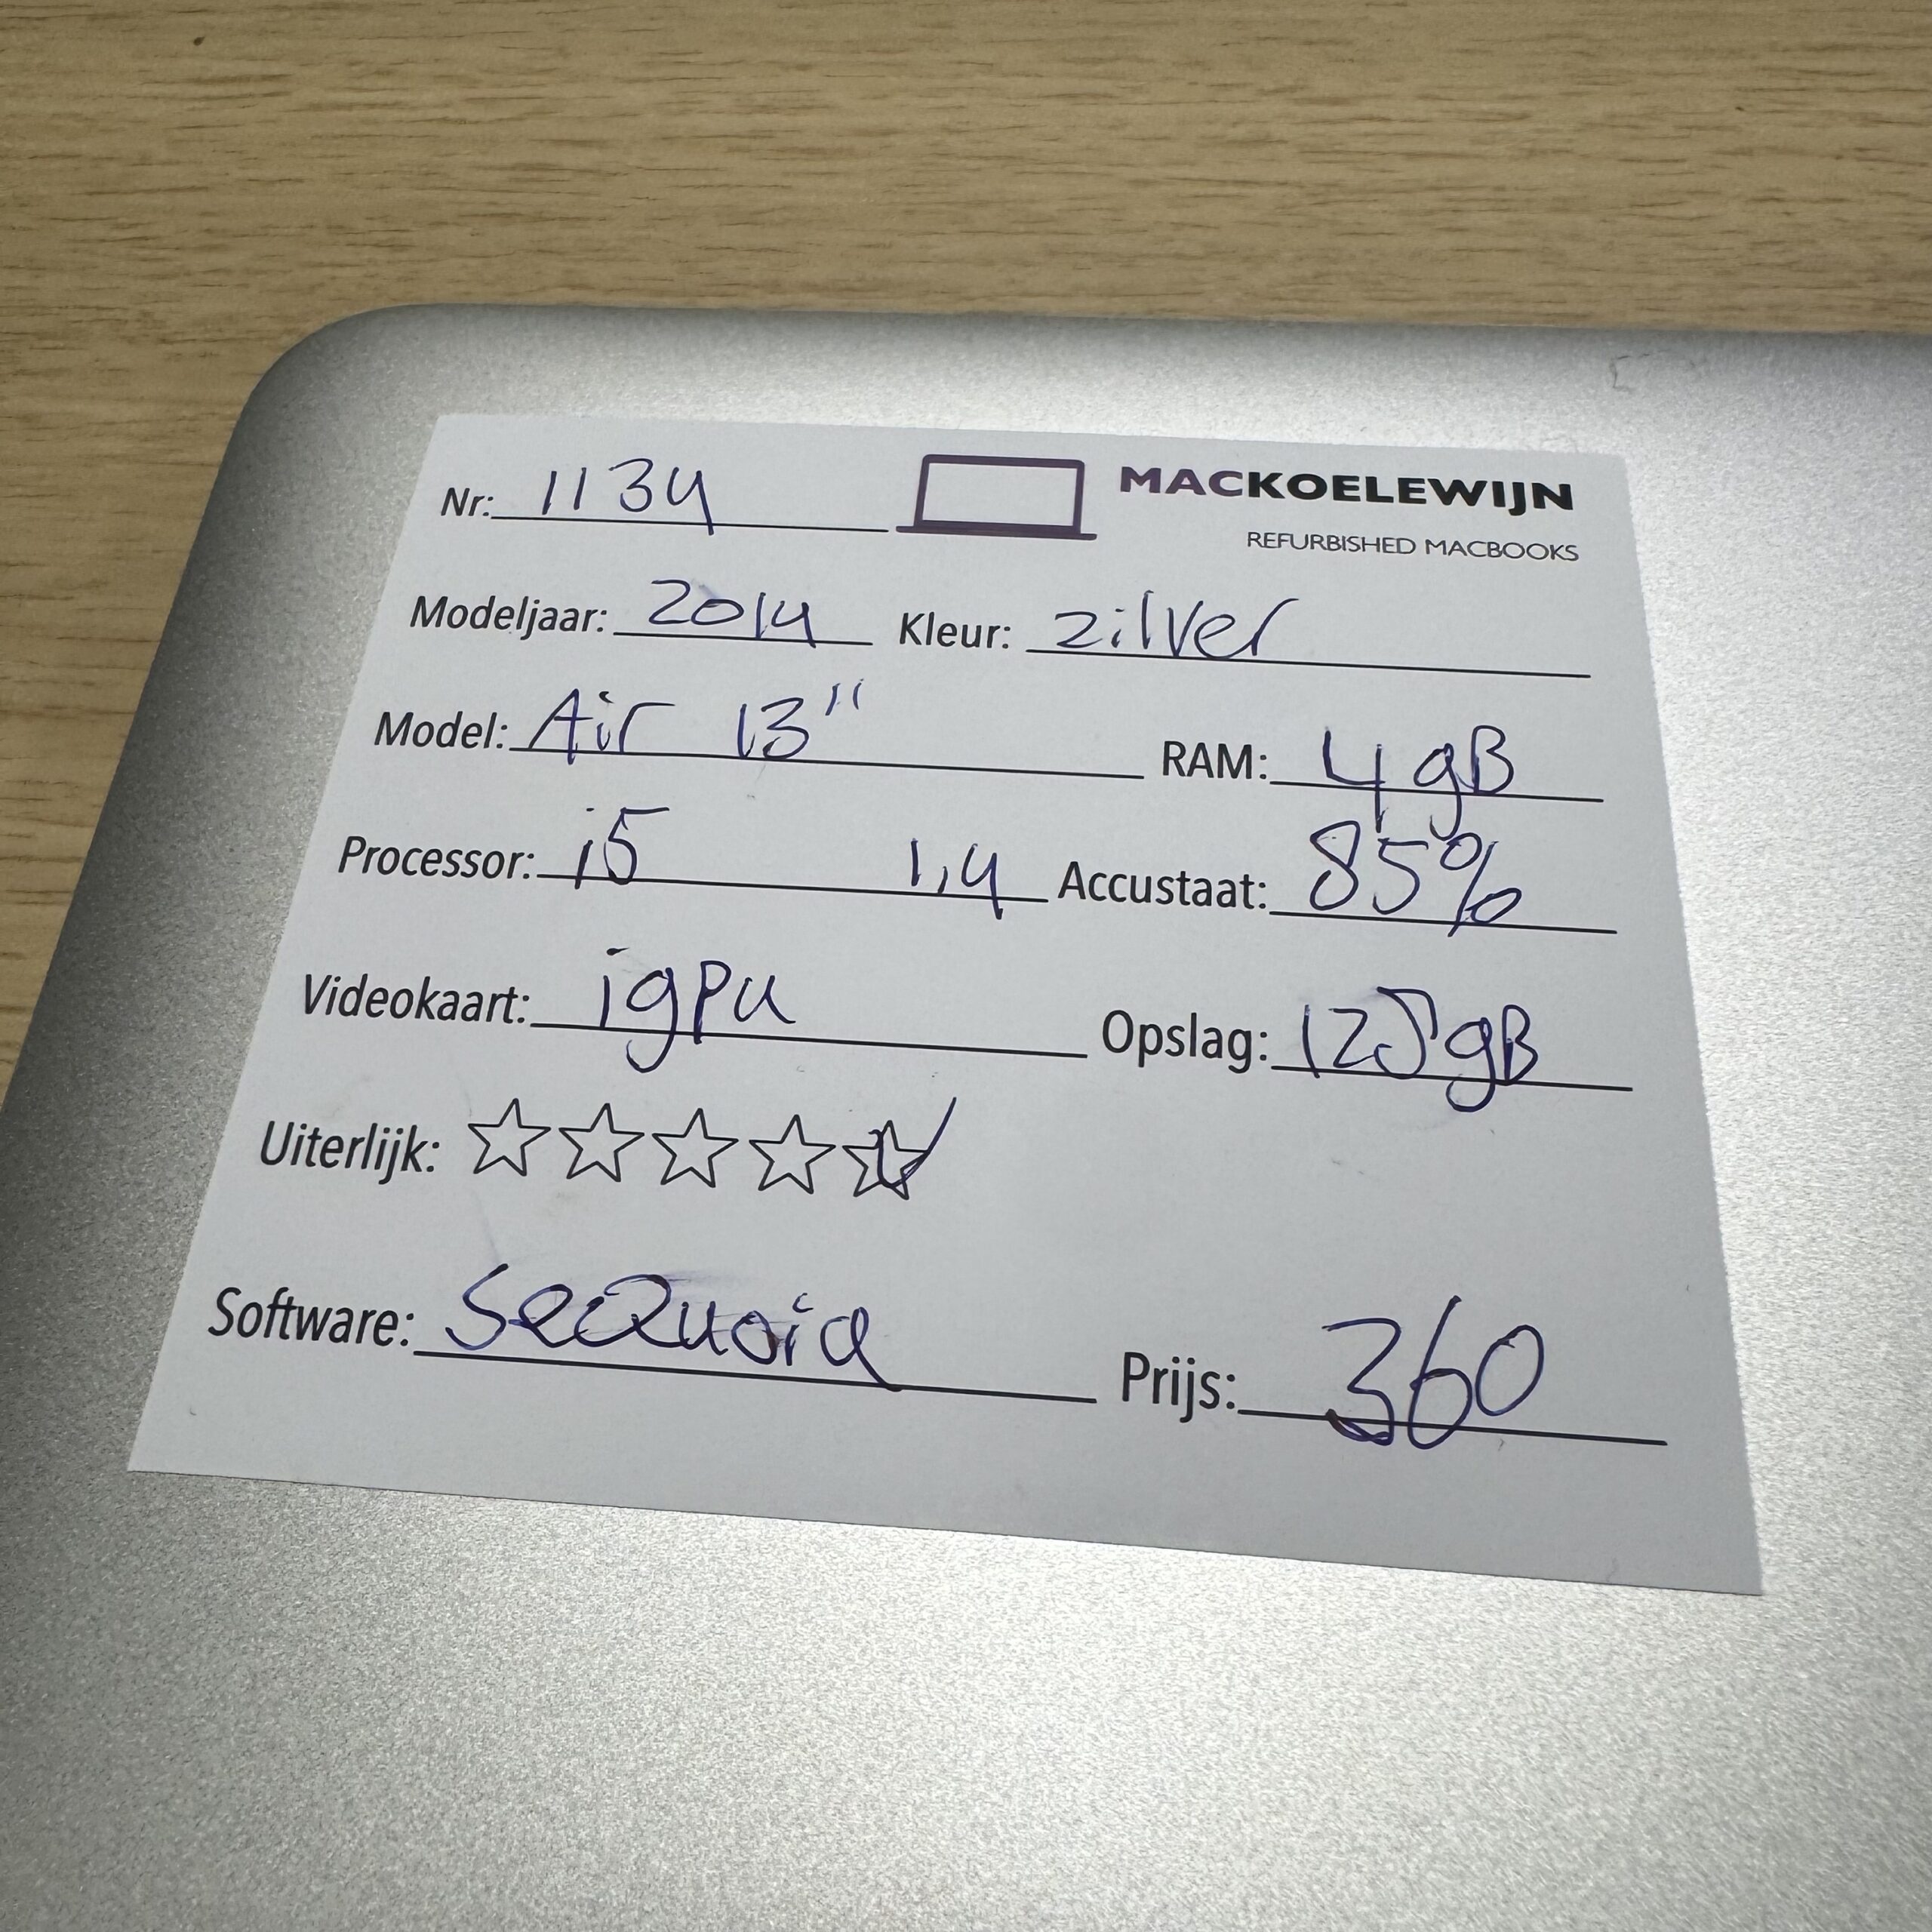 Nr: 1134 MACKOELEWIJN
REFURBISHED MACBOOKS
Modeljaar: 2014 Kleur: zilver
Model: Air 13" RAM: 4 gB
Processor: i5 1,4 Accustaat: 85%
Videokaart: igpu Opslag: 128 gB
Uiterlijk:
Software: SeQuoia Prijs: 360